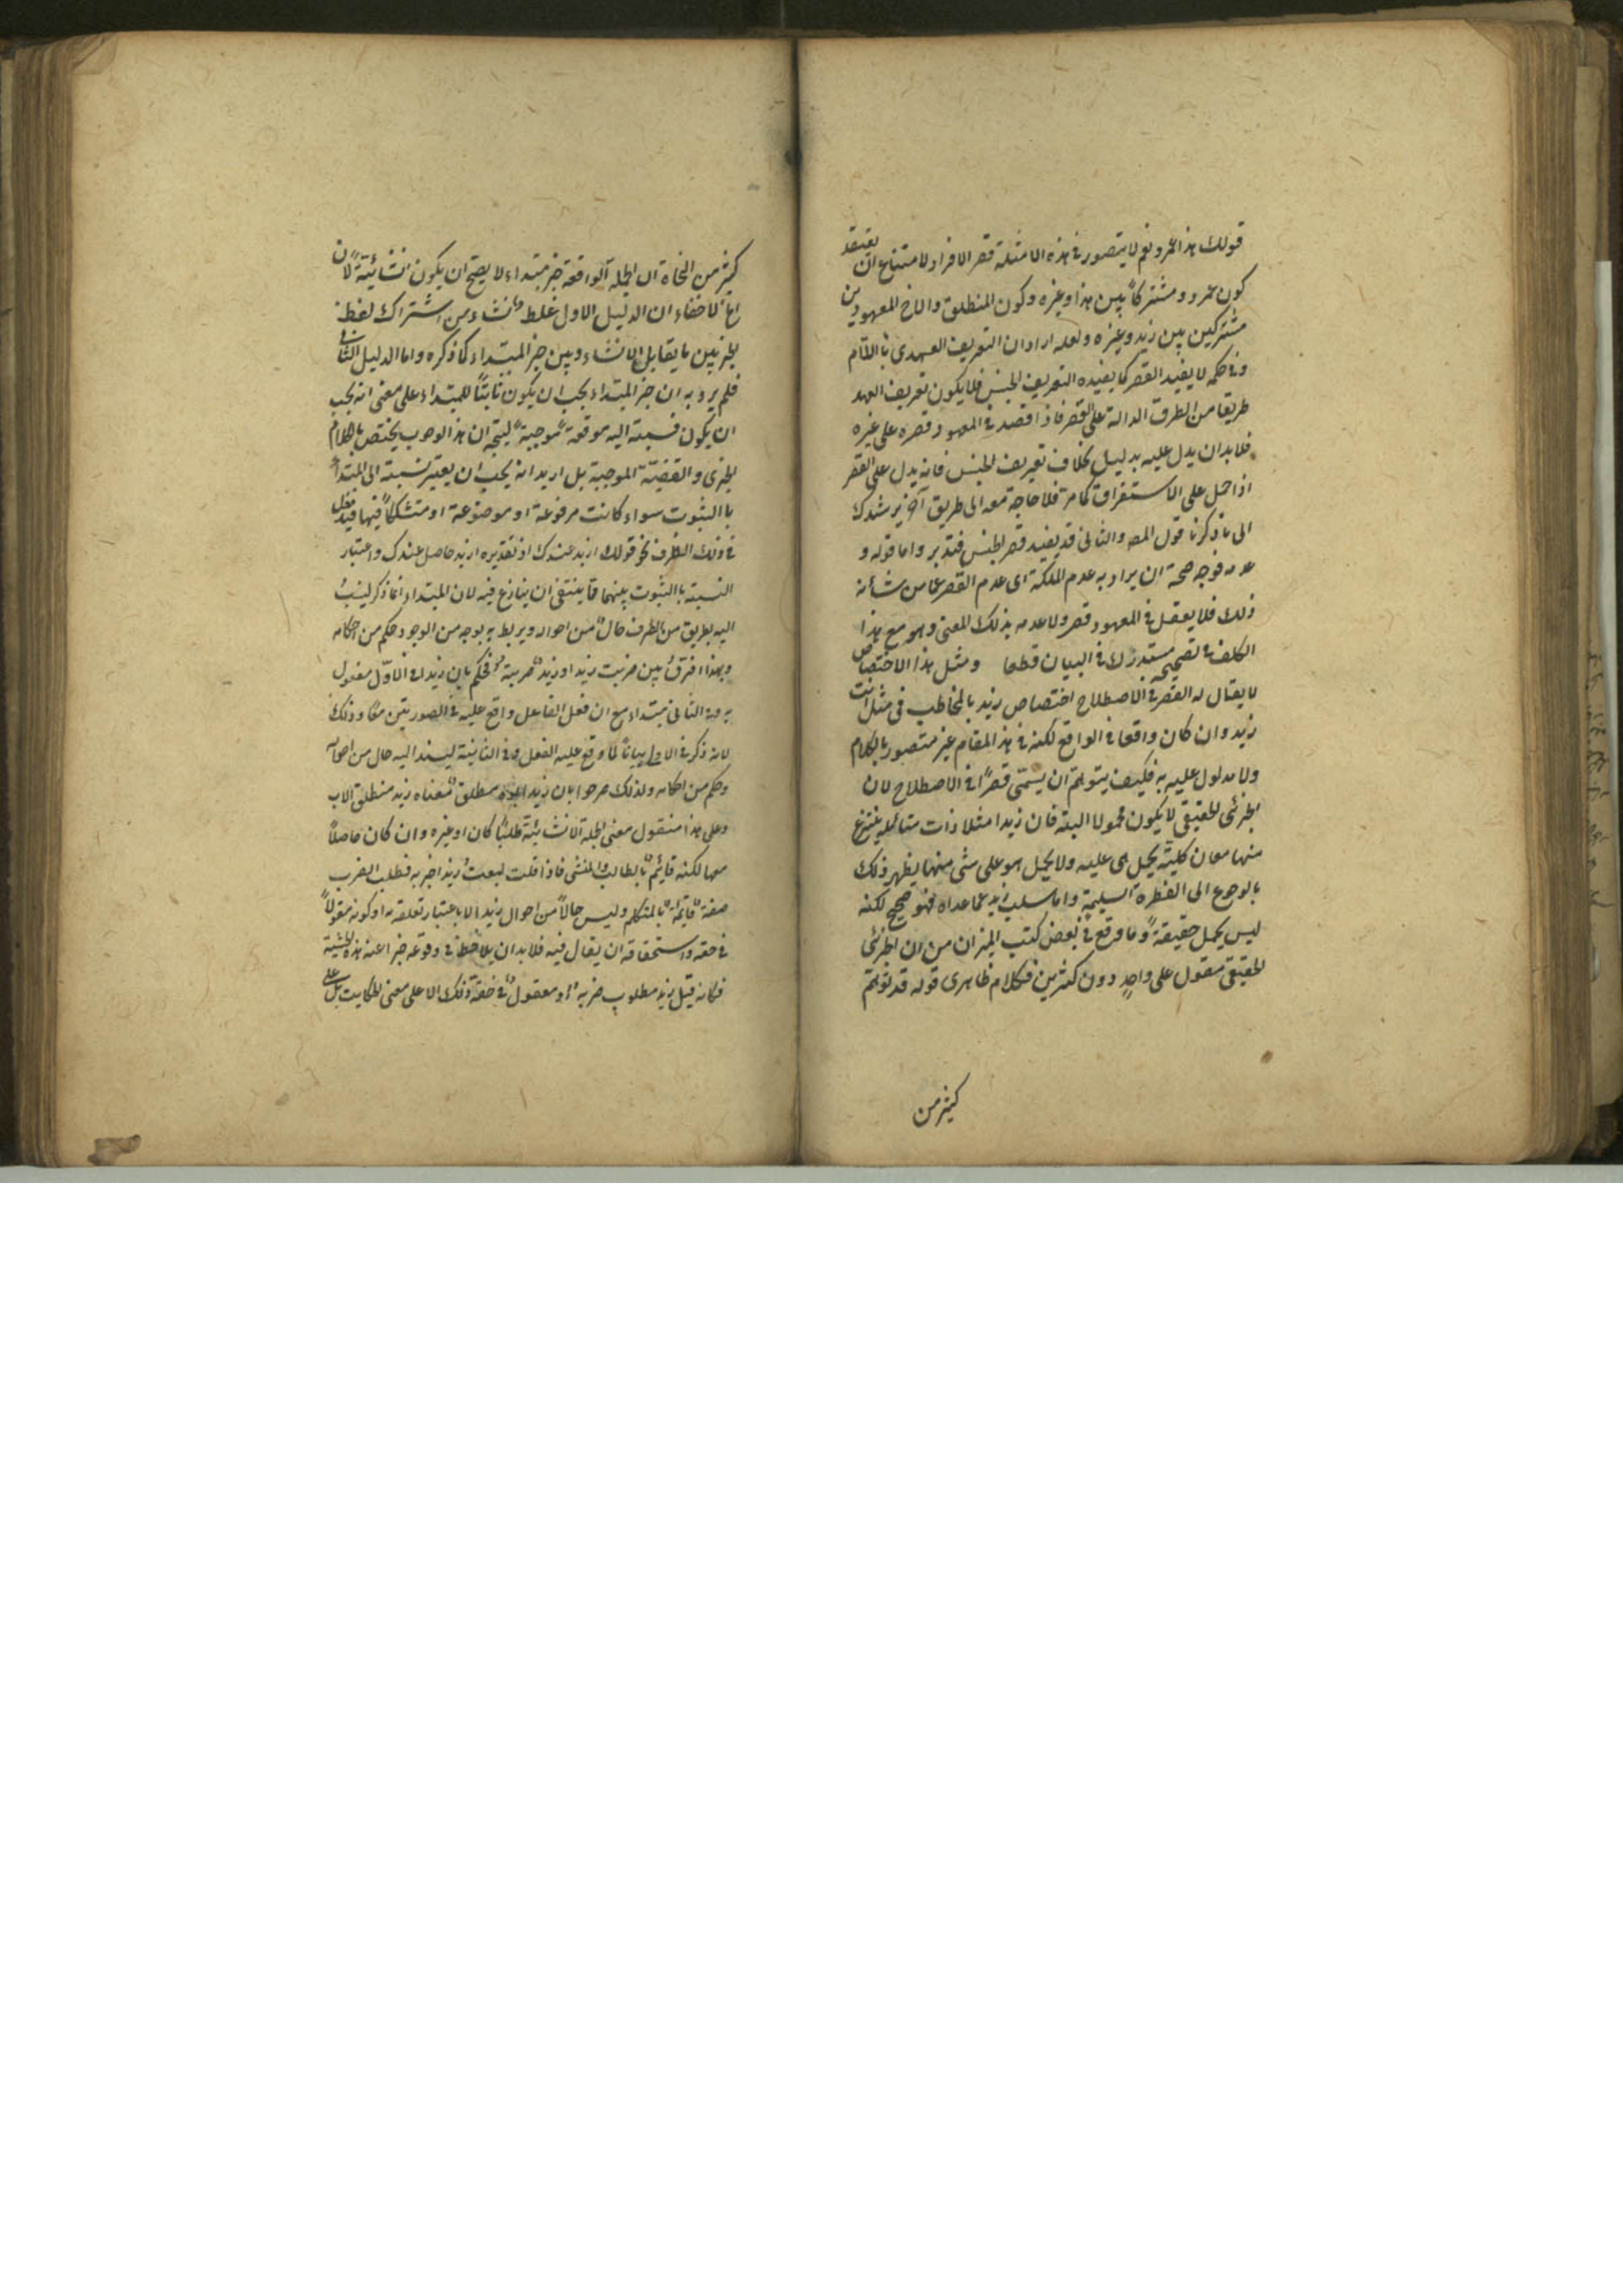 قولك هذا عمرو نعم لا يتصور في هذه الامثلة قصر الافراد لامتناع ان يعتقد
كون عمرو مشتركا بين هذا وغيره وكون المنطلق والاخ المعهودين
مشتركين بين زيد وغيره ولعله اراد ان التعريف العهدى باللام
وفي حكمه لا يفيد القصر كما يفيده التعريف الجنس فلا يكون تعريف العهد
طريقا من الطرق الدالة على القصر فاذا قصد في المعهود قصره على غيره
فلا بد ان يدل عليه بدليل بخلاف تعريف الجنس فانه يدل على القصر
اذا حمل على الاستغراق كما مر فلا حاجة معه الى طريق آخر يرشدك
الى ما ذكرنا قول المص والثاني قد يفيد قصر الجنس فتدبر واما قوله و
عدمه فوجه صحة ان يراد به عدم الملكة اى عدم القصر عما من شأنه
ذلك فلا يعقل في المعهود قصر ولا عدمه بذلك المعنى وهو مع هذا
التكلف في تصحيحه مستدرك في البيان قطعا ومثل هذا الاختصاص
لا يقال له القصر في الاصطلاح اختصاص زيد بالمخاطب في مثل انت
زيد وان كان واقعا في الواقع لكنه في هذا المقام غير متصور بالكلام
ولا مدلول عليه به فكيف يتوهم ان يسمّى قصرًا في الاصطلاح لان
الجزئى الحقيقى لا يكون محمولا البتة فان زيدا مثلا ذات متأصلة ينتزع
منها معان كلية يحمل هى عليه ولا يحمل هو على شئ منها يظهر ذلك
بالرجوع الى الفطرة السليمة واما سلب زيد عما عداه فهو صحيح لكنه
ليس يحمل حقيقة وما وقع في بعض كتب الميزان من ان الجزئى
الحقيقى مقول على واحد دون كثيرين فكلام ظاهرى قوله قد توهم
كثير من
كثير من النحاة ان الجملة الواقعة خبر مبتداء لا يصح ان يكون انشائية لان
اه لا خفاء ان الدليل الاول غلط نشاء من اشتراك لفظ
الخبر بين ما يقابل الانشاء وبين خبر المبتداء كما ذكره واما الدليل الثاني
فلم يرد به ان خبر المبتداء يجب ان يكون ثابتًا للمبتداء على معنى انه يجب
ان يكون نسبته اليه موقعة موجبة ليتجه ان هذا الوجوب يختص بالكلام
الخبرى والقضيّة الموجبة بل اريد انه يجب ان يعتبر نسبته الى المبتدأ
باالثبوت سواء كانت مرفوعة او موضوعة او متشككا فيها فيدخل
في ذلك الظرف نحو قولك ازيد عندك اذ تقديره ازيد حاصل عندك واعتبار
النسبة باالثبوت بينهما مما ينتفى ان ينازع فيه لان المبتداء انما ذكر لينسب
اليه بطريق من الطرف حال من احواله ويربط به بوجه من الوجوه حكم من احكامه
وبهذا افترق بين ضربت زيدا وزيد ضربته فحكم بان زيدا في الاوّل مفعول
به وفي الثاني مبتداء مع ان فعل الفاعل واقع عليه في الصورتين معًا وذلك
لانه ذكر في الاول بيانًا لما وقع عليه الفعل وفي الثانية ليسند اليه حال من احواله
وحكم من احكامه ولذلك صرحوا بان زيد ابوه منطلق معناه زيد منطلق الاب
وعلى هذا منقول معنى الجملة الانشائيّة طلبًا كان او غيره وان كان حاصلًا
معها لكنه قائم بالطالب والمنشى فاذا قلت زيد اضربه فطلب الضرب
صفة قائمة بالمتكلم وليس حالًا من احوال زيد الا باعتبار تعلقه به او كونه مقولًا
في حقه واستحقاقه ان يقال فيه فلا بد ان يلاحظ في وقوعه خبرا عنه هذه الحيثية
فكانه قيل زيد مطلوب ضربه او مقول في حقه ذلك لا على معنى الحكاية بل على